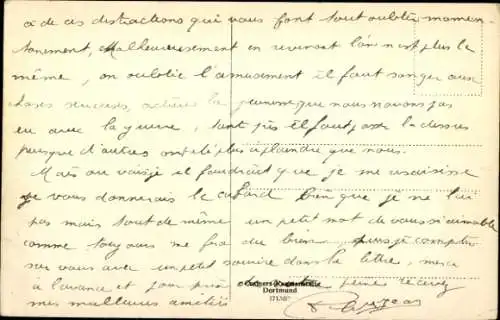 a de ces distractions qui vous font tout oublier momen
tanement, Malheureusement en revenant l'on n'est plus le
même, on oublie l'amusement il faut songer aux
choses serieuses, la que nous n'avons pas
eu avec la guerre, tant pis il faut passer la dessus
puisque d'autres ont été plus à plaindre que nous.
Mais ou vais je il faudrait que je me
je vous donnerais le cafard bien que je ne l'ai
pas mais tout de même un petit mot de vous si aimable
comme toujours me fera du bien, puis je compter
sur vous avec un petit sourire dans la lettre, merci
à l'avance et pour recevez
mes meilleures amitiés
Dortmund